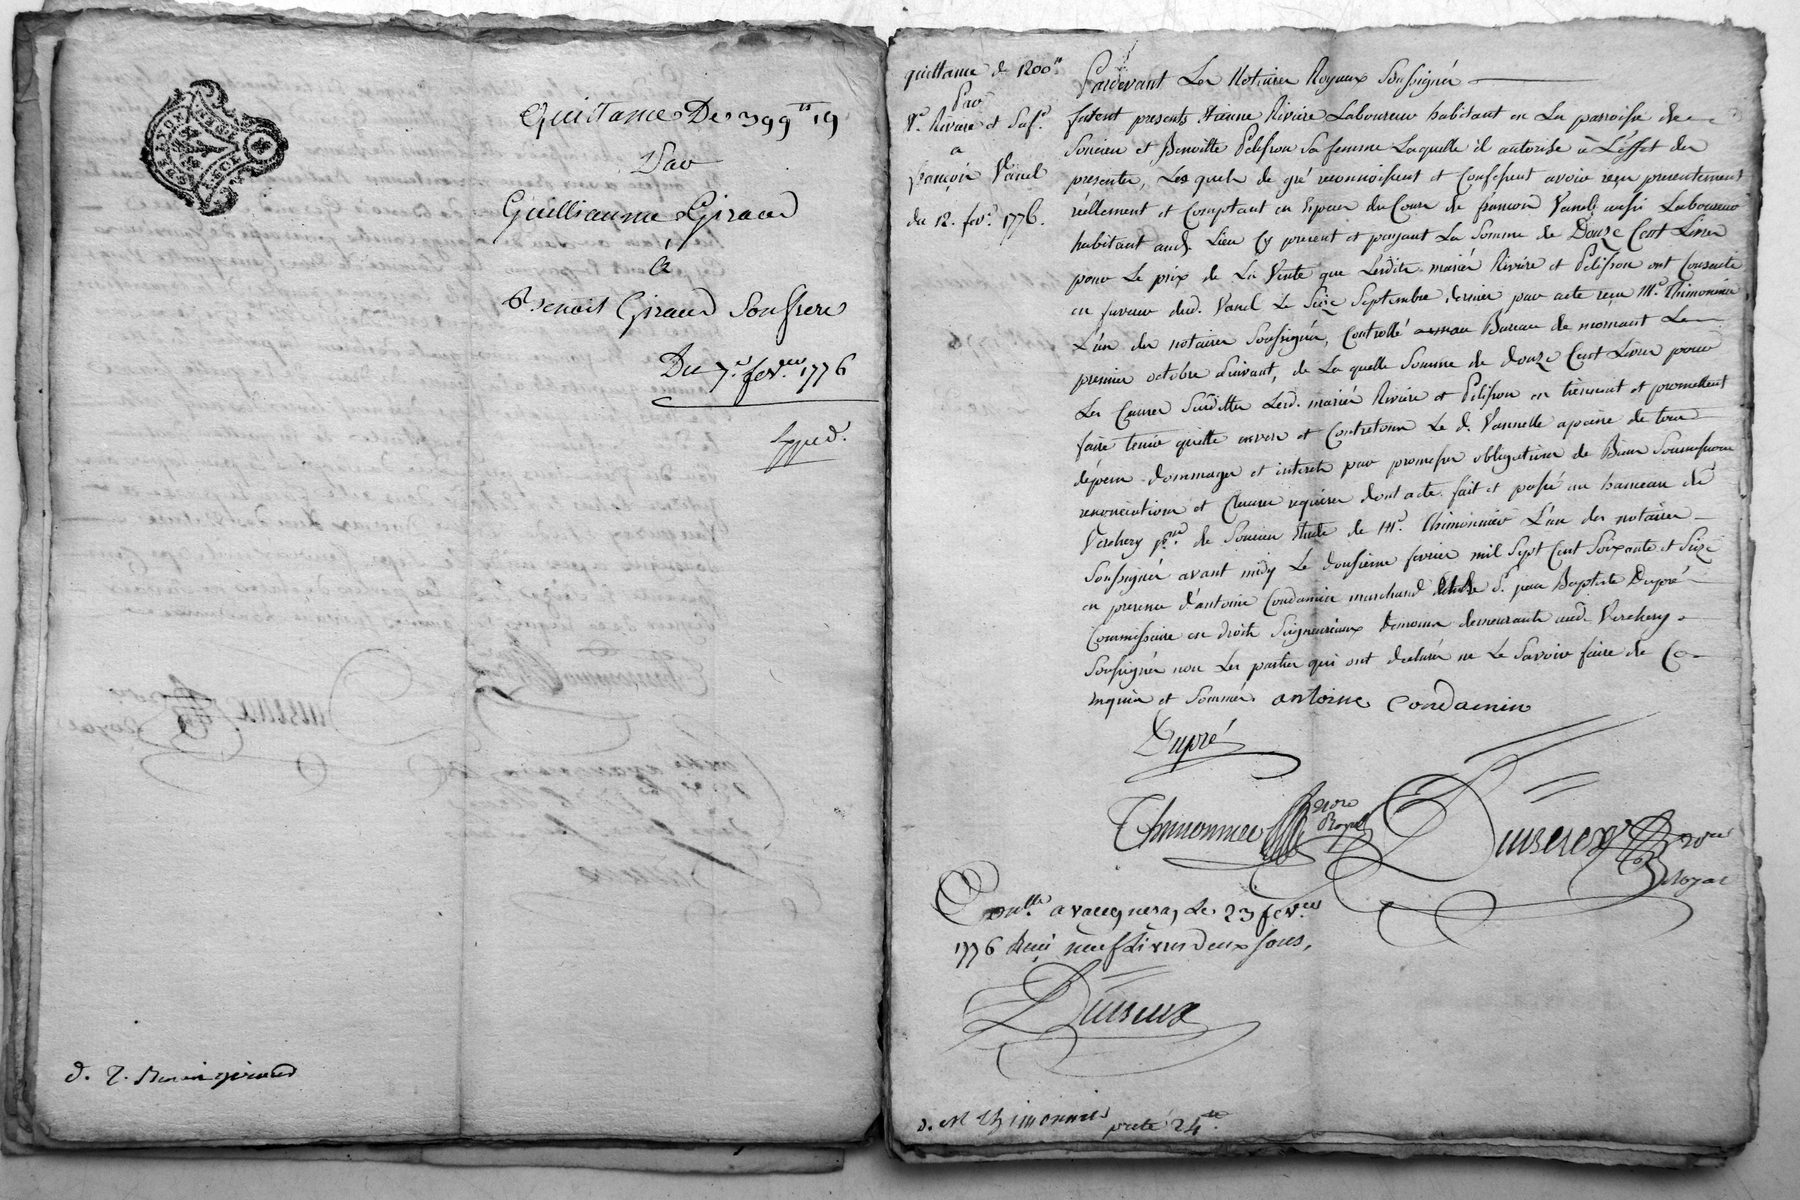 Quittance De 399ᵗˢ 19
Par
Guilliaume Giraud
à
Benoit Giraud Son frere
Du 7ᵉ fevʳᵉ 1776
Exped.
d. Benoit giraud
quittance de 1200ᵗᵗ
Par
E. Riviere et Sa fᵉ.
a
françois Vanel
du 12. fevʳ. 1776.
Pardevant Les Notaires Royaux Soussignés
furent presents Etienne Riviere Laboureur habitant en La parroisse de
Soucieu et Benoitte Pelisson Sa femme Laquelle il autorise à L'effet des
presentes, Lesquels de gré reconnoissent et Confessent avoir reçu presentement
réellement et Comptant en Especes du Cours de françois Vanel aussi Laboureur
habitant audᵗ. Lieu Cy present et payant La Somme de Douze Cent Livres
pour Le prix de La Vente que Lesdits mariés Riviere et Pelisson ont Consentie
en faveur dud. Vanel Le Seize Septembre dernier par acte reçu Mᵉ. Thimonnier
L'un des notaires Soussignés, Controllé au Bureau de mornant Le
premier octobre Suivant, de La quelle Somme de douze Cent Livres pour
Les Causes Susdittes Lesd. mariés Riviere et Pelisson en tiennent et promettent
faire tenir quitte envers et Contre tous Le d. Vannelle a peine de tous
dépens dommages et interets par promesses obligations de Biens Soumissions
renonciations et Clauses requises dont acte. fait et passé au hameau de
Verchery psseᵉ. de Soucieu Etude de Mᵉ. Thimonnier L'un des notaires
Soussignés avant midy Le douzieme fevrier mil Sept Cent Soixante et Seize
en presence d'antoine Condamin marchand et de Sʳ. jean Baptiste Dupré
Commissaire en droits Seigneuriaux temoins demeurants aud. Verchery
Soussignés non Les parties qui ont declaré ne Le Savoir faire de Ce
enquis et Sommés antoine Condamin
Dupré
Thimonnier noʳᵉ Royal Duiseux noʳᵉ
Royal
Contˡˡᵉ a vaugneray Le 23 fevʳᵉ
1776 Reçu neuf Livres deux sous,
Duiseux
d. M Thimonnier